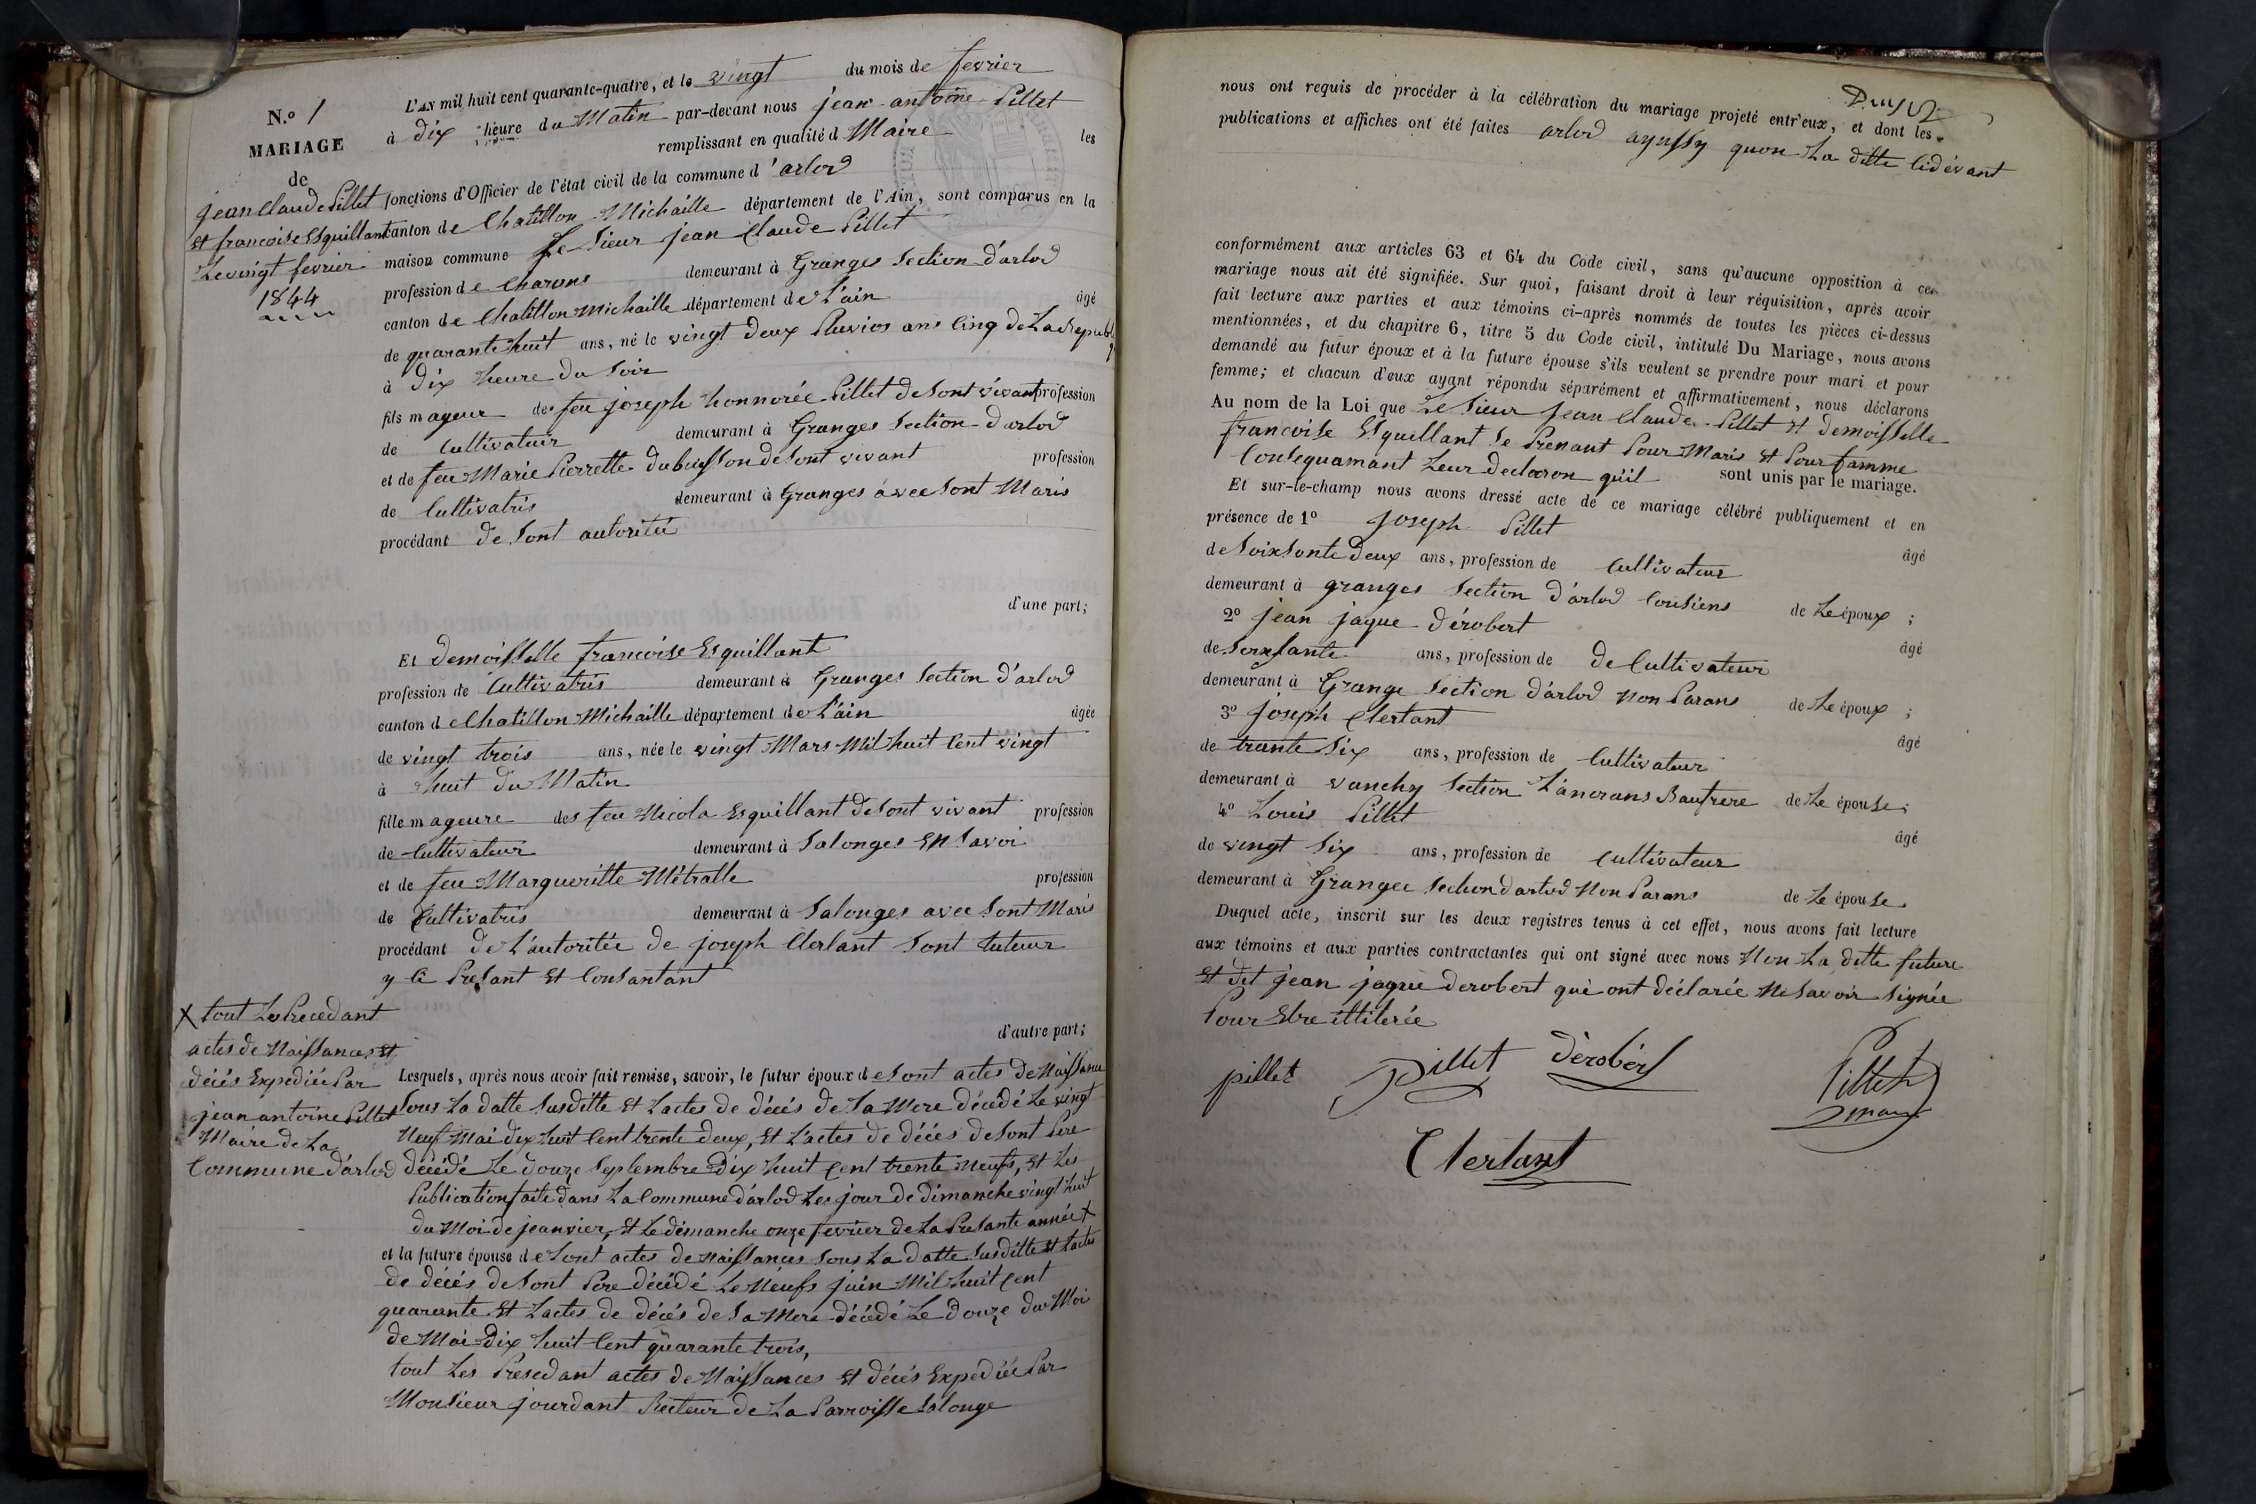 N.o 1
MARIAGE
de
jean Claude Pillet
et francoise Esquillant
Le vingt fevrier
1844
L'AN mil huit cent quarante-quatre, et le vingt du mois de fevrier
à dix heure du Matin par-devant nous jean-antoine Pillet
remplissant en qualité d Maire les
fonctions d'Officier de l'état civil de la commune d'arlod
canton de Chatillon Michaille département de l'Ain, sont comparus en la
maison commune Le Sieur jean Claude Pillet
profession de Charons demeurant à Granges Section d'arlod
canton de Chatillon Michaille département de L'ain âgé
de quarante huit ans, né le vingt deux Pluvios ans Cinq de La Republ
à dix heure du Soir
fils mageur de feu joseph honnorée Pillet de Sont vivant profession
de Cultivateur demeurant à Granges Section d'arlod
et de feu Marie Pierrette Dubuisson de Sont vivant profession
de Cultivatris demeurant à Granges avec Sont Maris
procédant de Sont autoritée
d'une part;
Et demoisselle francoise Esquillant
profession de Cultivatris demeurant à Granges Section d'arlod
canton de Chatillon Michaille département de L'ain âgée
de vingt trois ans, née le vingt Mars Mil huit Cent vingt
à huit du Matin
fille mageure des feu Nicola Esquillant de Sont vivant profession
de Cultivateur demeurant à Salonges En Savoi
et de feu Margueritte Métralle profession
de Cultivatris demeurant à Salonges avec Sont Maris
procédant de L'autoritée de joseph Clerlant Sont tuteur
y Ci Presant Et Consantant
d'autre part;
X tout Les Precedant
actes de Naissances Et
décés Expediée Par
jean antoine Pillet
Maire de La
Commune d'arlod
Lesquels, après nous avoir fait remise, savoir, le futur époux de Sont actes de Naissance
Sous La datte Susditte Et Lactes de décés de Sa Mere décédé Le vingt
Neuf Mai dix huit Cent trente deux, Et L'actes de décés de Sont Pere
décédé Le douze Septembre dix huit Cent trente Neufs, Et Les
Publication faite dans La Commune d'arlod Les jour de dimanche vingt huit
du Moi de jeanvier, Et Le démanche onze fevrier de La Presante année X
et la future épouse de Sont actes de Naissances Sous La datte Susditte Et Lactes
de décés de Sont Pere décédé Le Neufs juin Mil huit Cent
quarante Et Lactes de décés de Sa Mere décédé Le douze du Moi
de Mai Dix huit Cent quarante trois,
tout Les Presedant actes de Naissances Et décés Expediée Par
Monsieur jourdant Recteur de La Parroisse Salonge
nous ont requis de procéder à la célébration du mariage projeté entr'eux, et dont les
publications et affiches ont été faites arlod aynssy quon La ditte Cidévant
conformément aux articles 63 et 64 du Code civil, sans qu'aucune opposition à ce
mariage nous ait été signifiée. Sur quoi, faisant droit à leur réquisition, après avoir
fait lecture aux parties et aux témoins ci-après nommés de toutes les pièces ci-dessus
mentionnées, et du chapitre 6, titre 5 du Code civil, intitulé Du Mariage, nous avons
demandé au futur époux et à la future épouse s'ils veulent se prendre pour mari et pour
femme; et chacun d'eux ayant répondu séparément et affirmativement, nous déclarons
Au nom de la Loi que Le Sieur Jean Claude Pillet Et demoisselle
francoise Esquellant Se Prenant Pour Maris Et Pour famme
Consequamant Leur declaron qu'il sont unis par le mariage.
Et sur-le-champ nous avons dressé acte de ce mariage célébré publiquement et en
présence de 1o Joseph Pillet âgé
de Soixsonte deux ans, profession de Cultivateur
demeurant à granges Section d'arlod Cousiens de Le époux ;
2o jean jaque dérobert âgé
de Soixsante ans, profession de de Cultivateur
demeurant à Grange Section d'arlod Non Parans de Le époux ;
3o joseph Clertant âgé
de trante Six ans, profession de Cultivateur
demeurant à vanchy Section Lancrans Baufrere de Le épouse ;
4o Louis Pillet âgé
de vingt Six ans, profession de Cultivateur
demeurant à Granges Section d'arlod Non Parans de Le épouse.
Duquel acte, inscrit sur les deux registres tenus à cet effet, nous avons fait lecture
aux témoins et aux parties contractantes qui ont signé avec nous Non La ditte future
Et dit jean jaque derobert qui ont déclarée Ne Savoir Signée
Pour Etre illiterée
pillet Pillet Dérobért Pillet
maire
Clertant